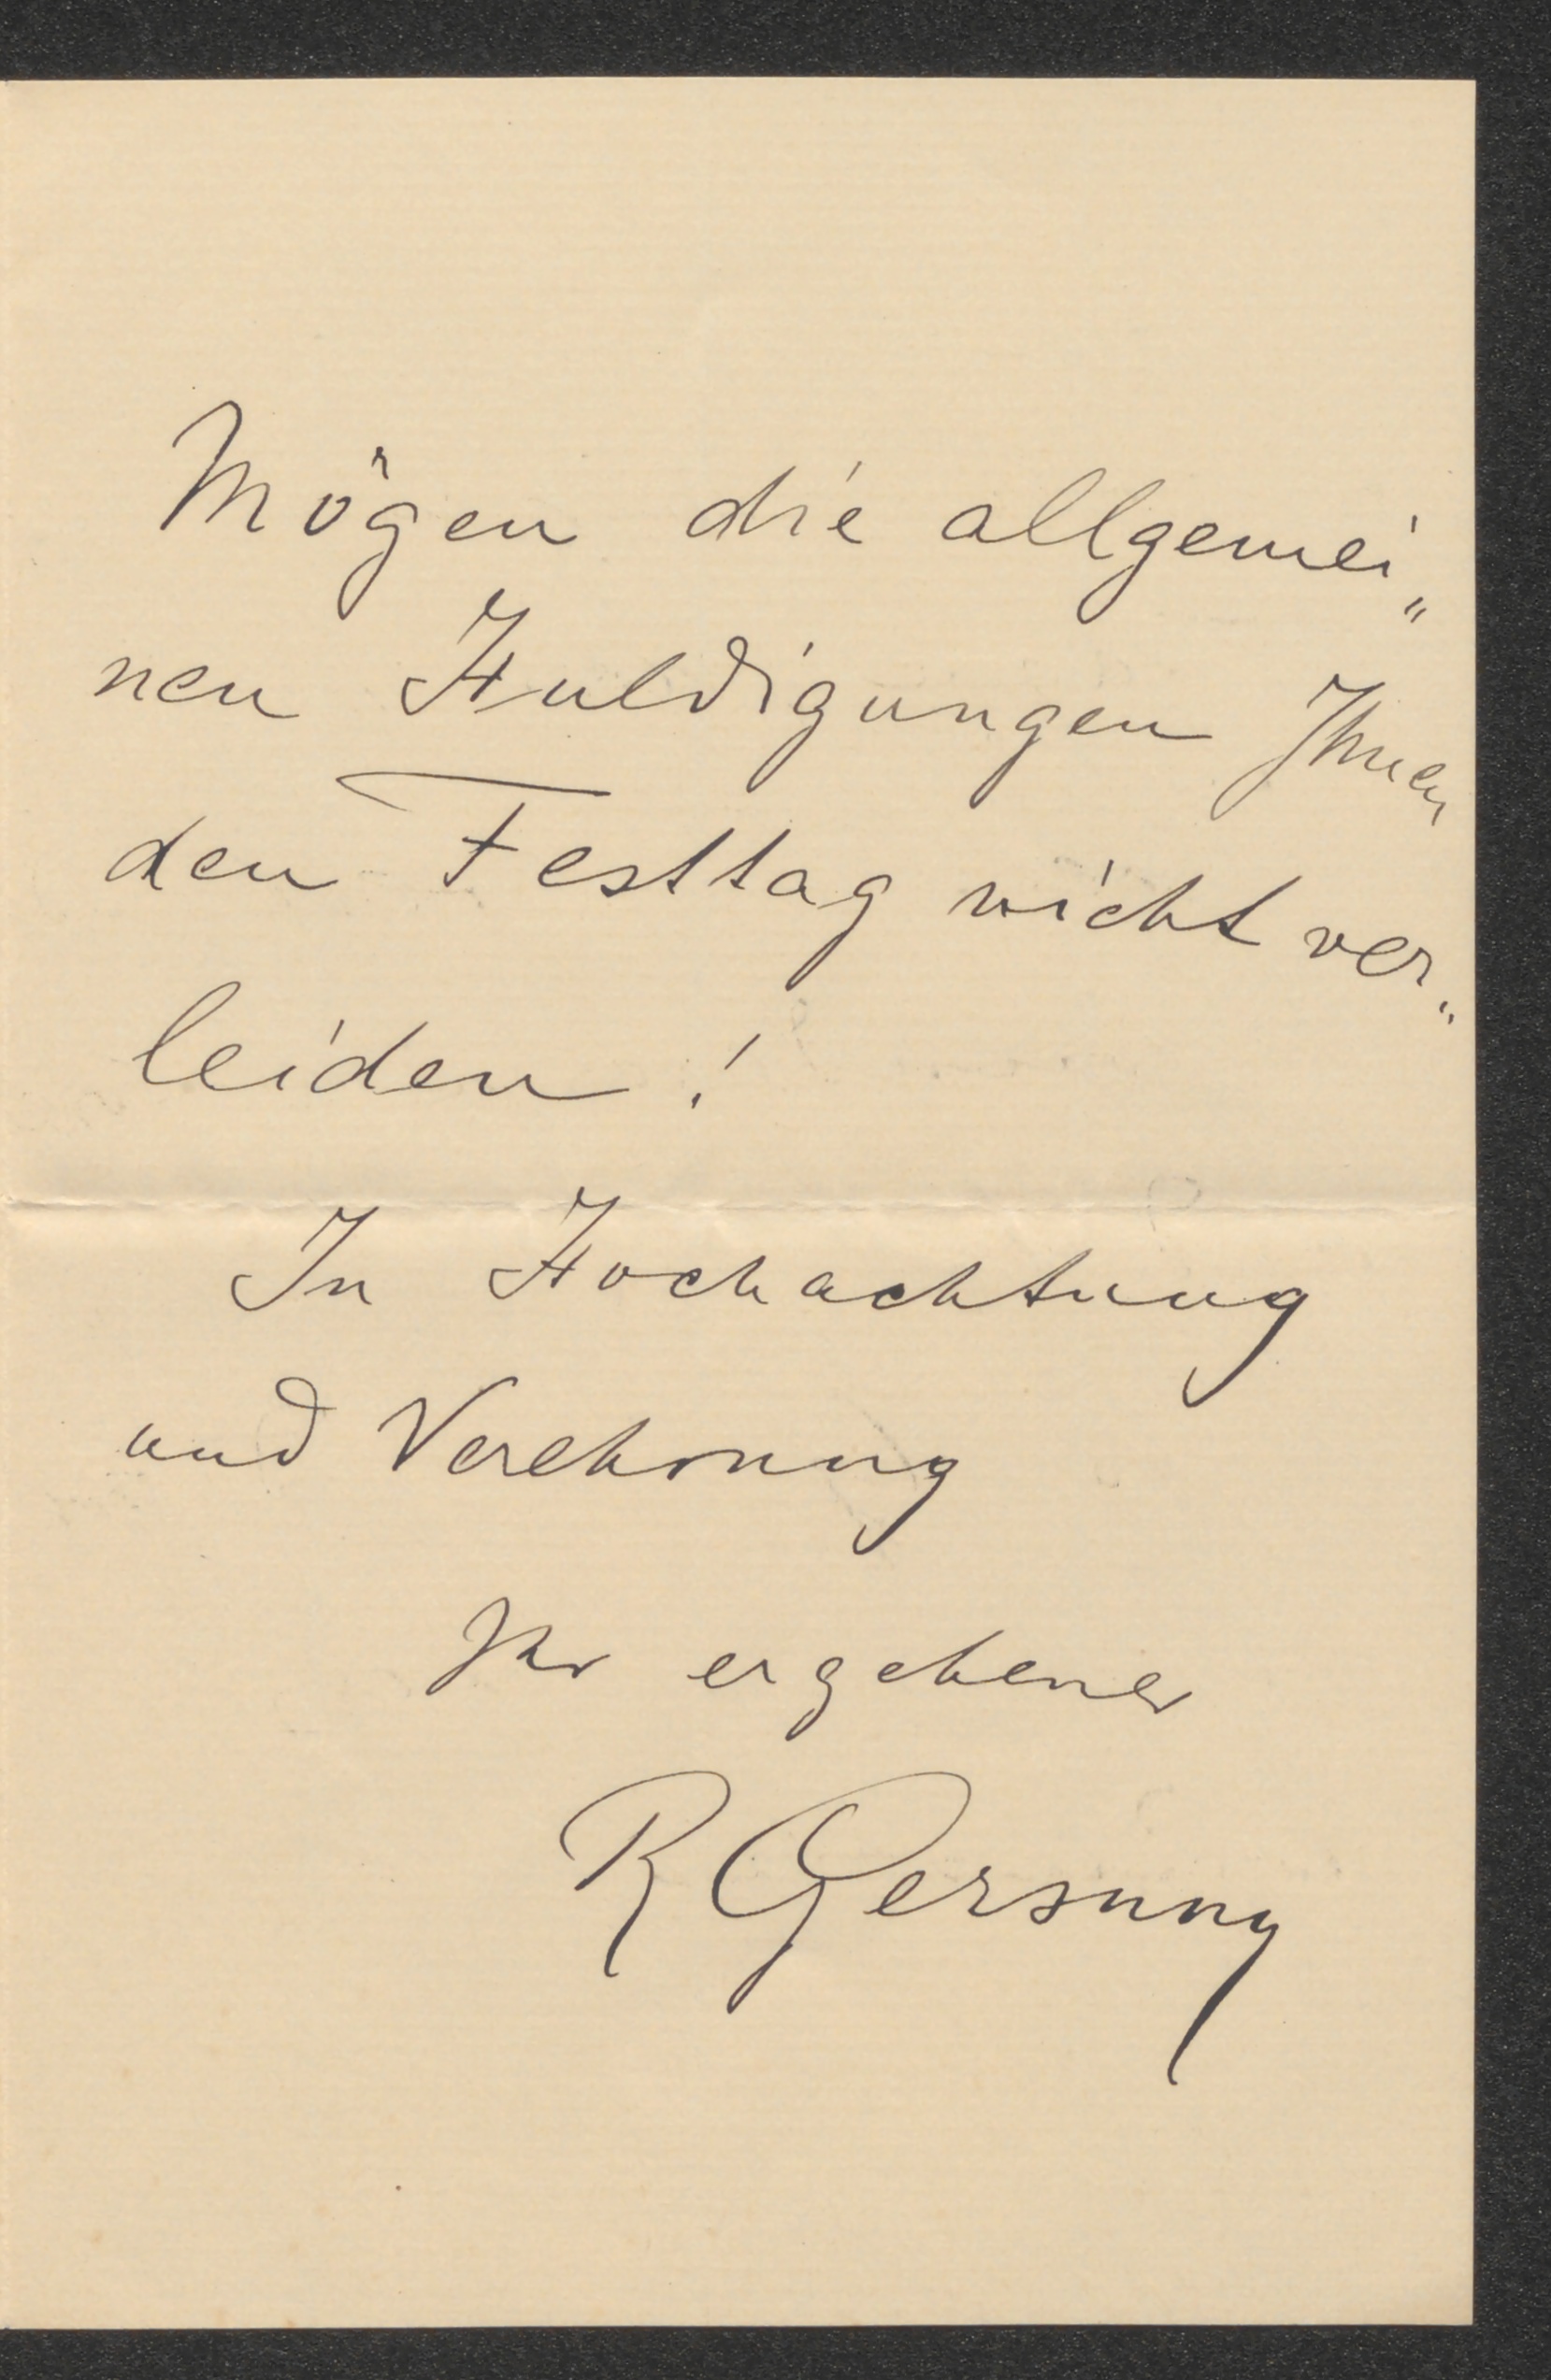 Mögen die allgemei„
nen Huldigungen Ihnen
den Festtag nicht ver„
leiden!
In Hochachtung
und Verehrung
Ihr ergebener
R Gersuny